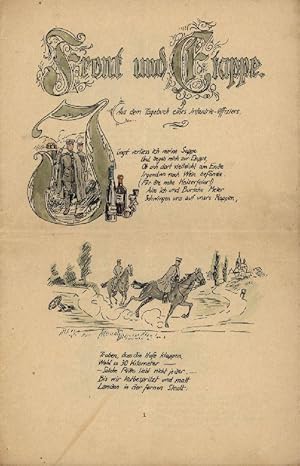 Front und Etappe.
Aus dem Tagebuch eines Infanterie-Offiziers.
Jüngst verliess ich meine Sappe
Und begab mich zur Etappe,
Ob sich dort vielleicht am Ende
Irgendwo noch Wein befände
(Für die nahe Kaiserfeier!)
Also ich und Bursche Meier
Schwingen uns auf unsre Rappen,
Traben, dass die Hufe klappen,
Wohl a 30 Kilometer —
– Solche Ritte liebt nicht jeder, —
Bis wir kotbespritzt und matt
Landen in der fernen Stadt.
1